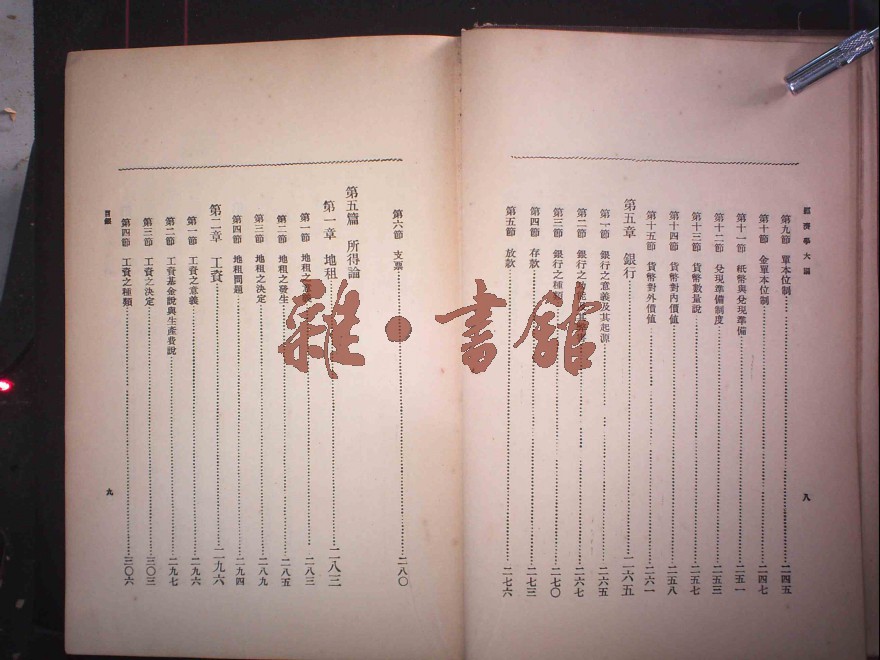 經濟學大綱
第九節 單本位制 二四五
第十節 金單本位制 二四七
第十一節 紙幣與兌現準備 二五一
第十二節 兌現準備制度 二五三
第十三節 貨幣數量說 二五七
第十四節 貨幣對內價値 二五八
第十五節 貨幣對外價値 二六一
第五章 銀行 二六五
第一節 銀行之意義及其起源 二六五
第二節 銀行之功能及其 二六七
第三節 銀行之種類 二七〇
第四節 存款 二七三
第五節 放款 二七六
八
第六節 支票 二八〇
第五篇 所得論
第一章 地租 二八三
第一節 地租之意義 二八三
第二節 地租之發生 二八五
第三節 地租之決定 二八九
第四節 地租問題 二九四
第二章 工資 二九六
第一節 工資之意義 二九六
第二節 工資基金說與生產費說 二九七
第三節 工資之決定 三〇三
第四節 工資之種類 三〇六
目錄
九
雜·書館